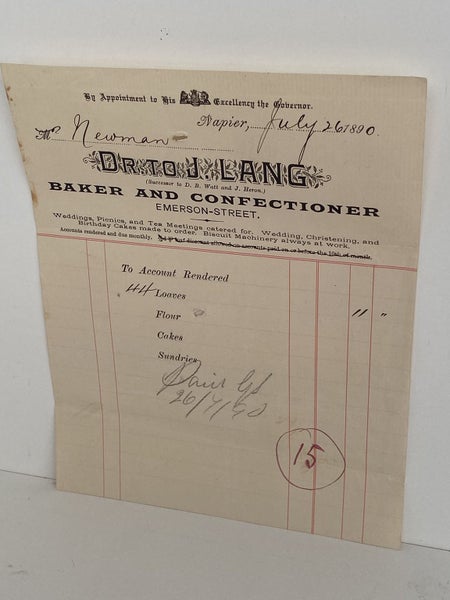 By Appointment to His Excellency the Governor.
Napier, July 26 1890.
Mr Newman
DR. TO J. LANG
(Successor to D. B. Watt and J. Heron.)
BAKER AND CONFECTIONER
EMERSON-STREET.
Weddings, Picnics, and Tea Meetings catered for. Wedding, Christening, and
Birthday Cakes made to order. Biscuit Machinery always at work.
Accounts rendered and due monthly. discount allowed on accounts paid on or before the 10th of month.
To Account Rendered
44 Loaves 11 "
Flour
Cakes
Sundries
Paid
26/7/90
15